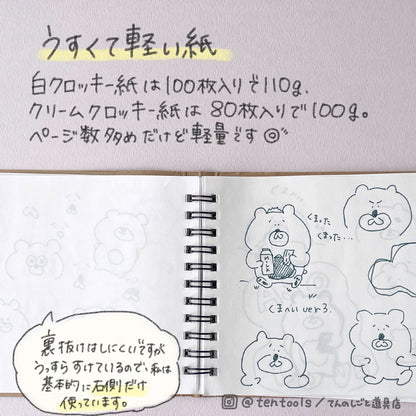 うすくて軽い紙
白クロッキー紙は100枚入りで110g、
クリームクロッキー紙は80枚入りで100g。
ページ数多めだけど軽量です◎"
くまへい…
くまった
くまった…
MILK
くまへい ver3.
裏抜けはしにくいですが
うっすらすけているので、私は
基本的に右側だけ
使っています。
@tentools/てんのしごと道具店